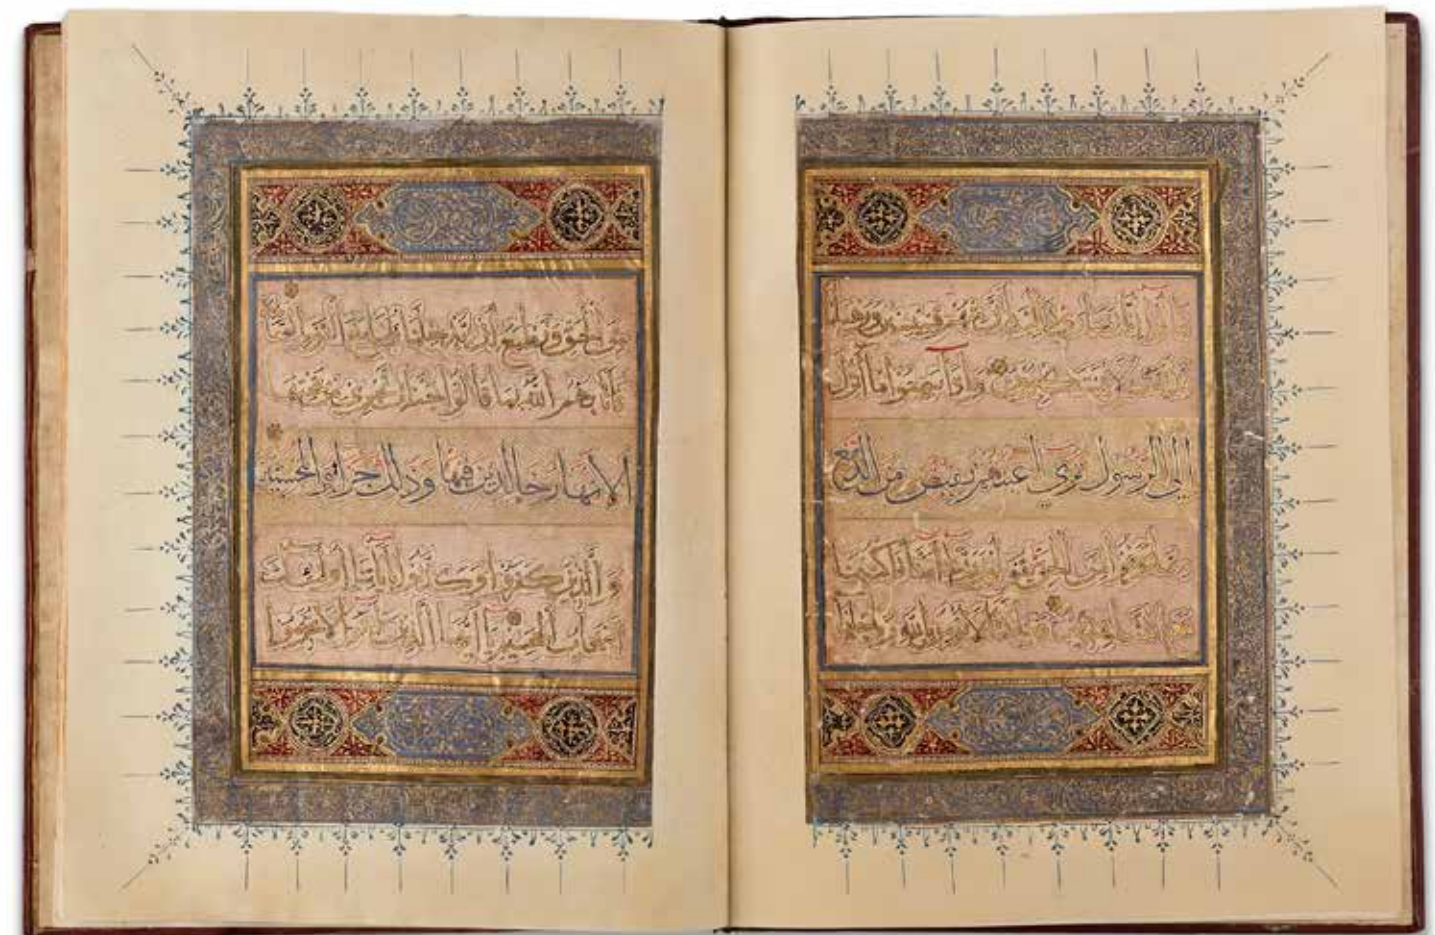 قالوا انا نصارى ذلك بان منهم قسيسين ورهبانا
وانهم لا يستكبرون واذا سمعوا ما انزل
الى الرسول ترى اعينهم تفيض من الدمع
مما عرفوا من الحق يقولون ربنا آمنا فاكتبنا
مع الشاهدين وما لنا لا نؤمن بالله وما جاءنا
من الحق ونطمع ان يدخلنا ربنا مع القوم الصالحين
فاثابهم الله بما قالوا جنات تجري من تحتها
الانهار خالدين فيها وذلك جزاء المحسنين
والذين كفروا وكذبوا باياتنا اولئك
اصحاب الجحيم يا ايها الذين آمنوا لا تحرموا